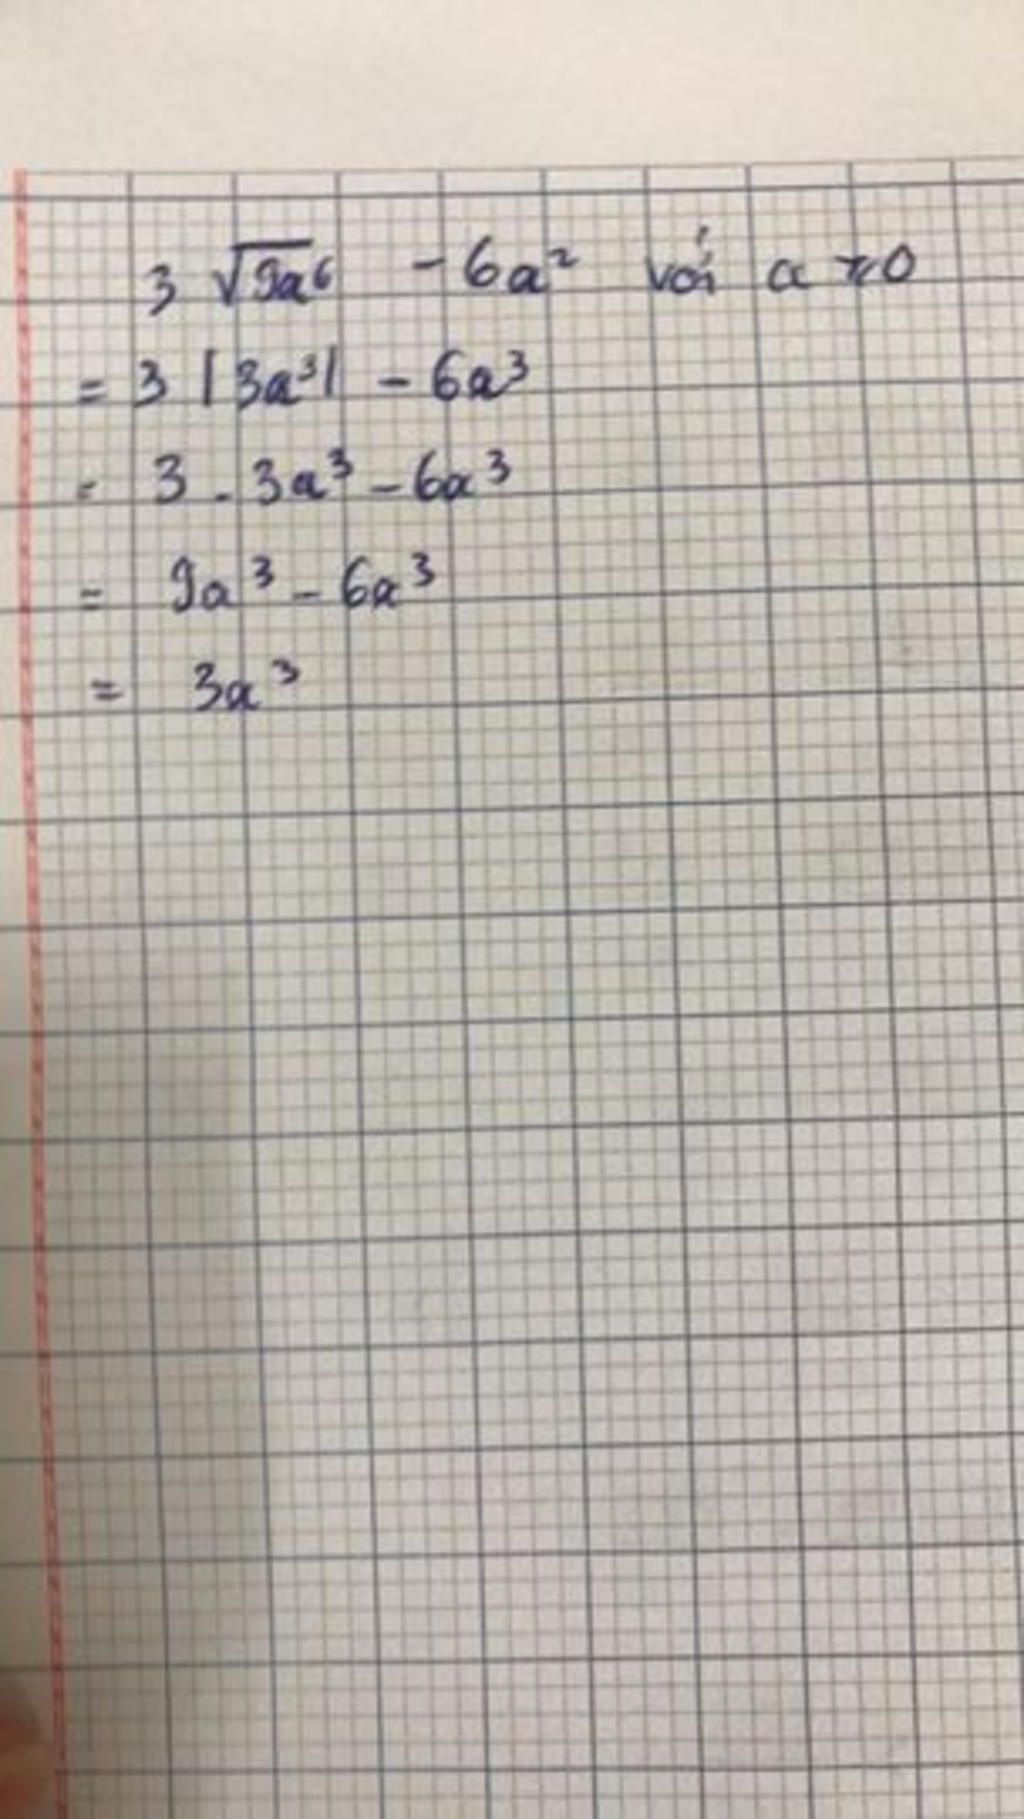 3 √9a⁶ - 6a² với a ≥ 0
= 3 |3a³| - 6a³
= 3 . 3a³ - 6a³
= 9a³ - 6a³
= 3a³